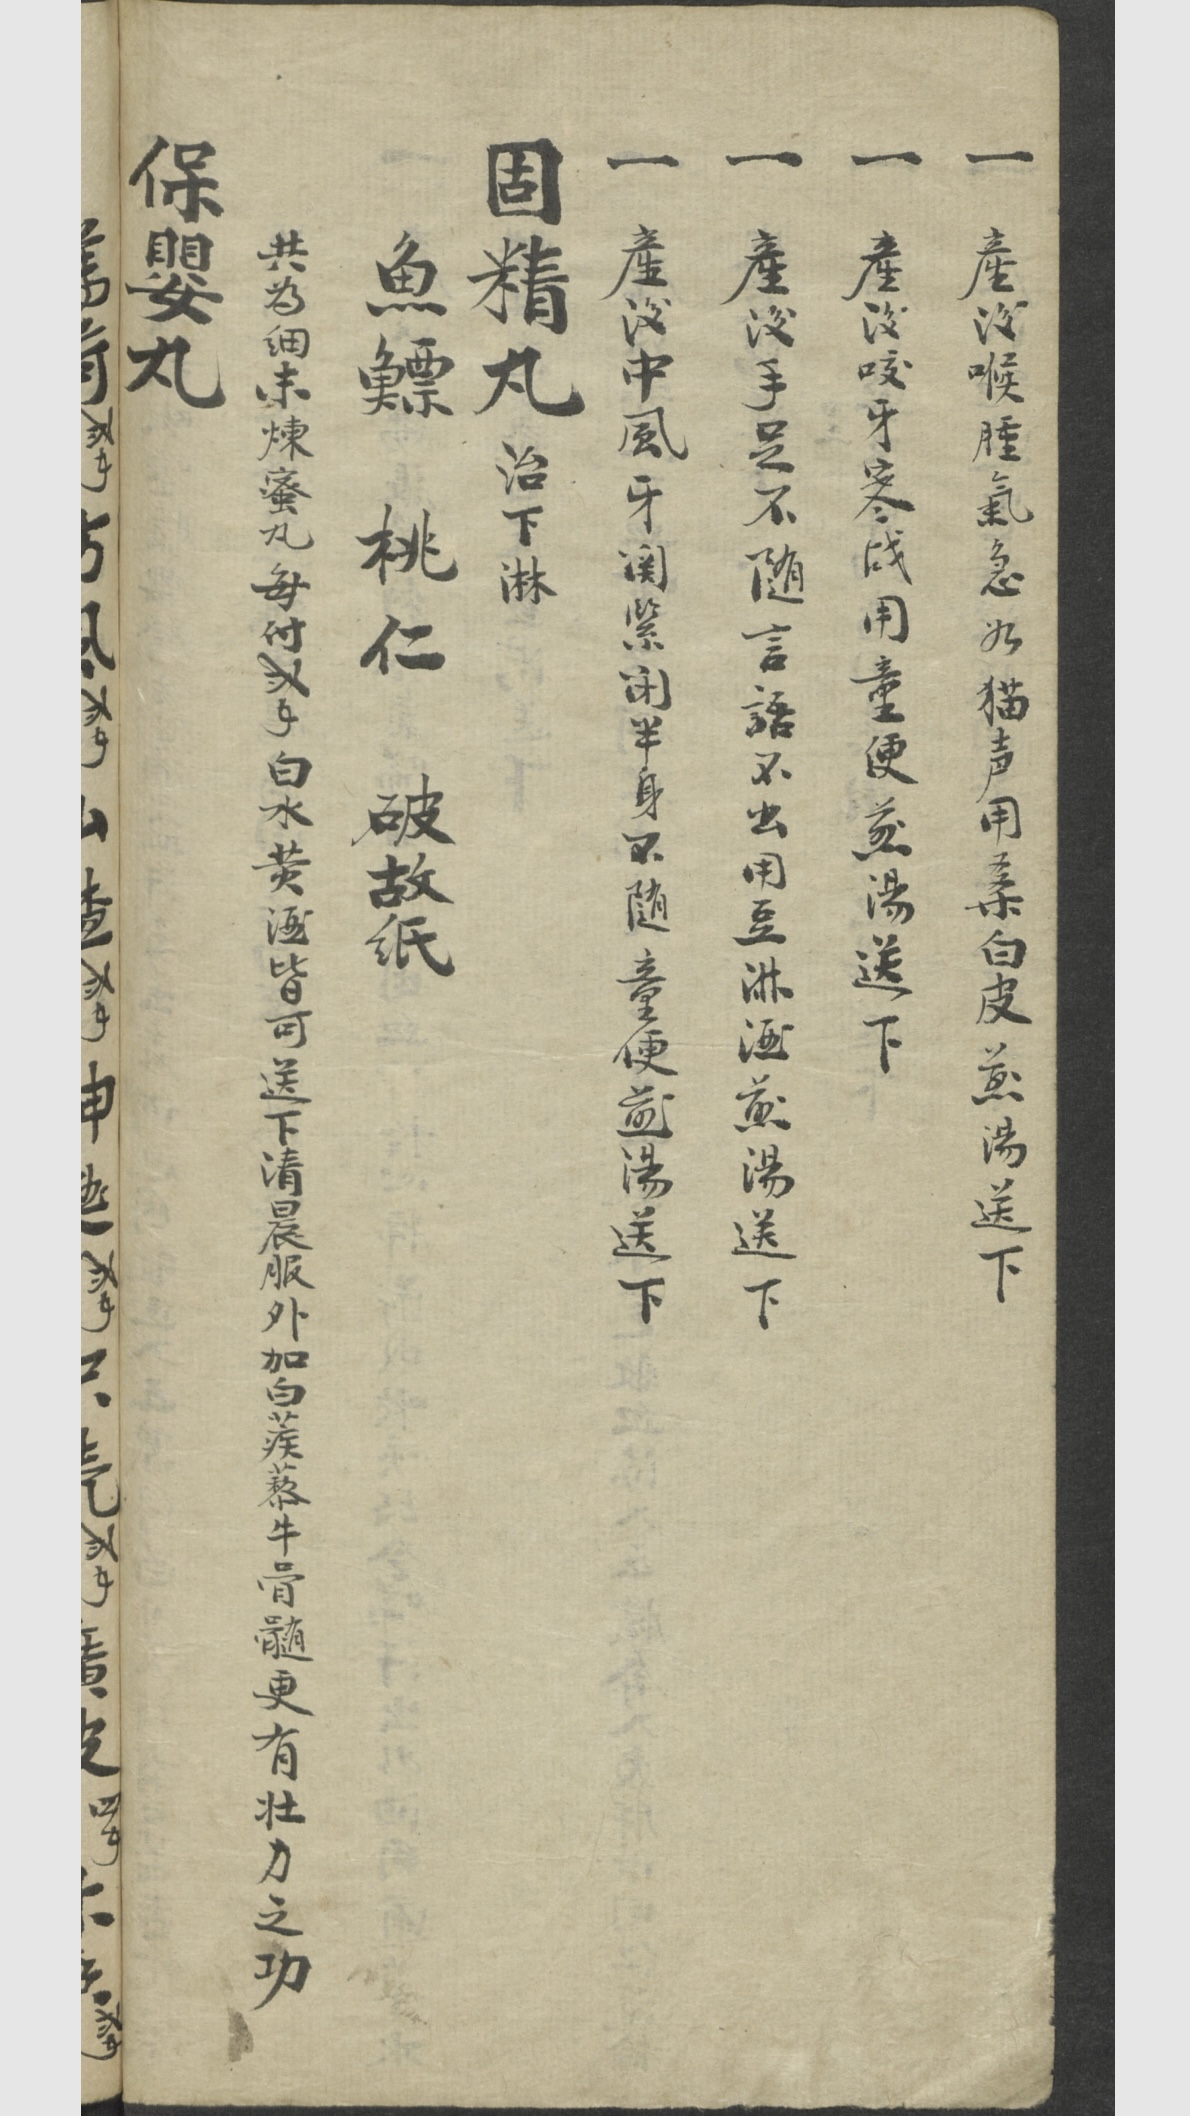 一 產後喉腫氣急如猫声用桑白皮煎湯送下
一 產後咬牙寒战用童便煎湯送下
一 產後手足不随言語不出用豆淋酒煎湯送下
一 產後中風牙関緊闭半身不随童便煎湯送下
固精丸 治下淋
魚鰾 桃仁 破故紙
共為细末煉蜜丸每付 白水黄酒皆可送下清晨服外加白蒺藜牛骨髓更有壮力之功
保嬰丸